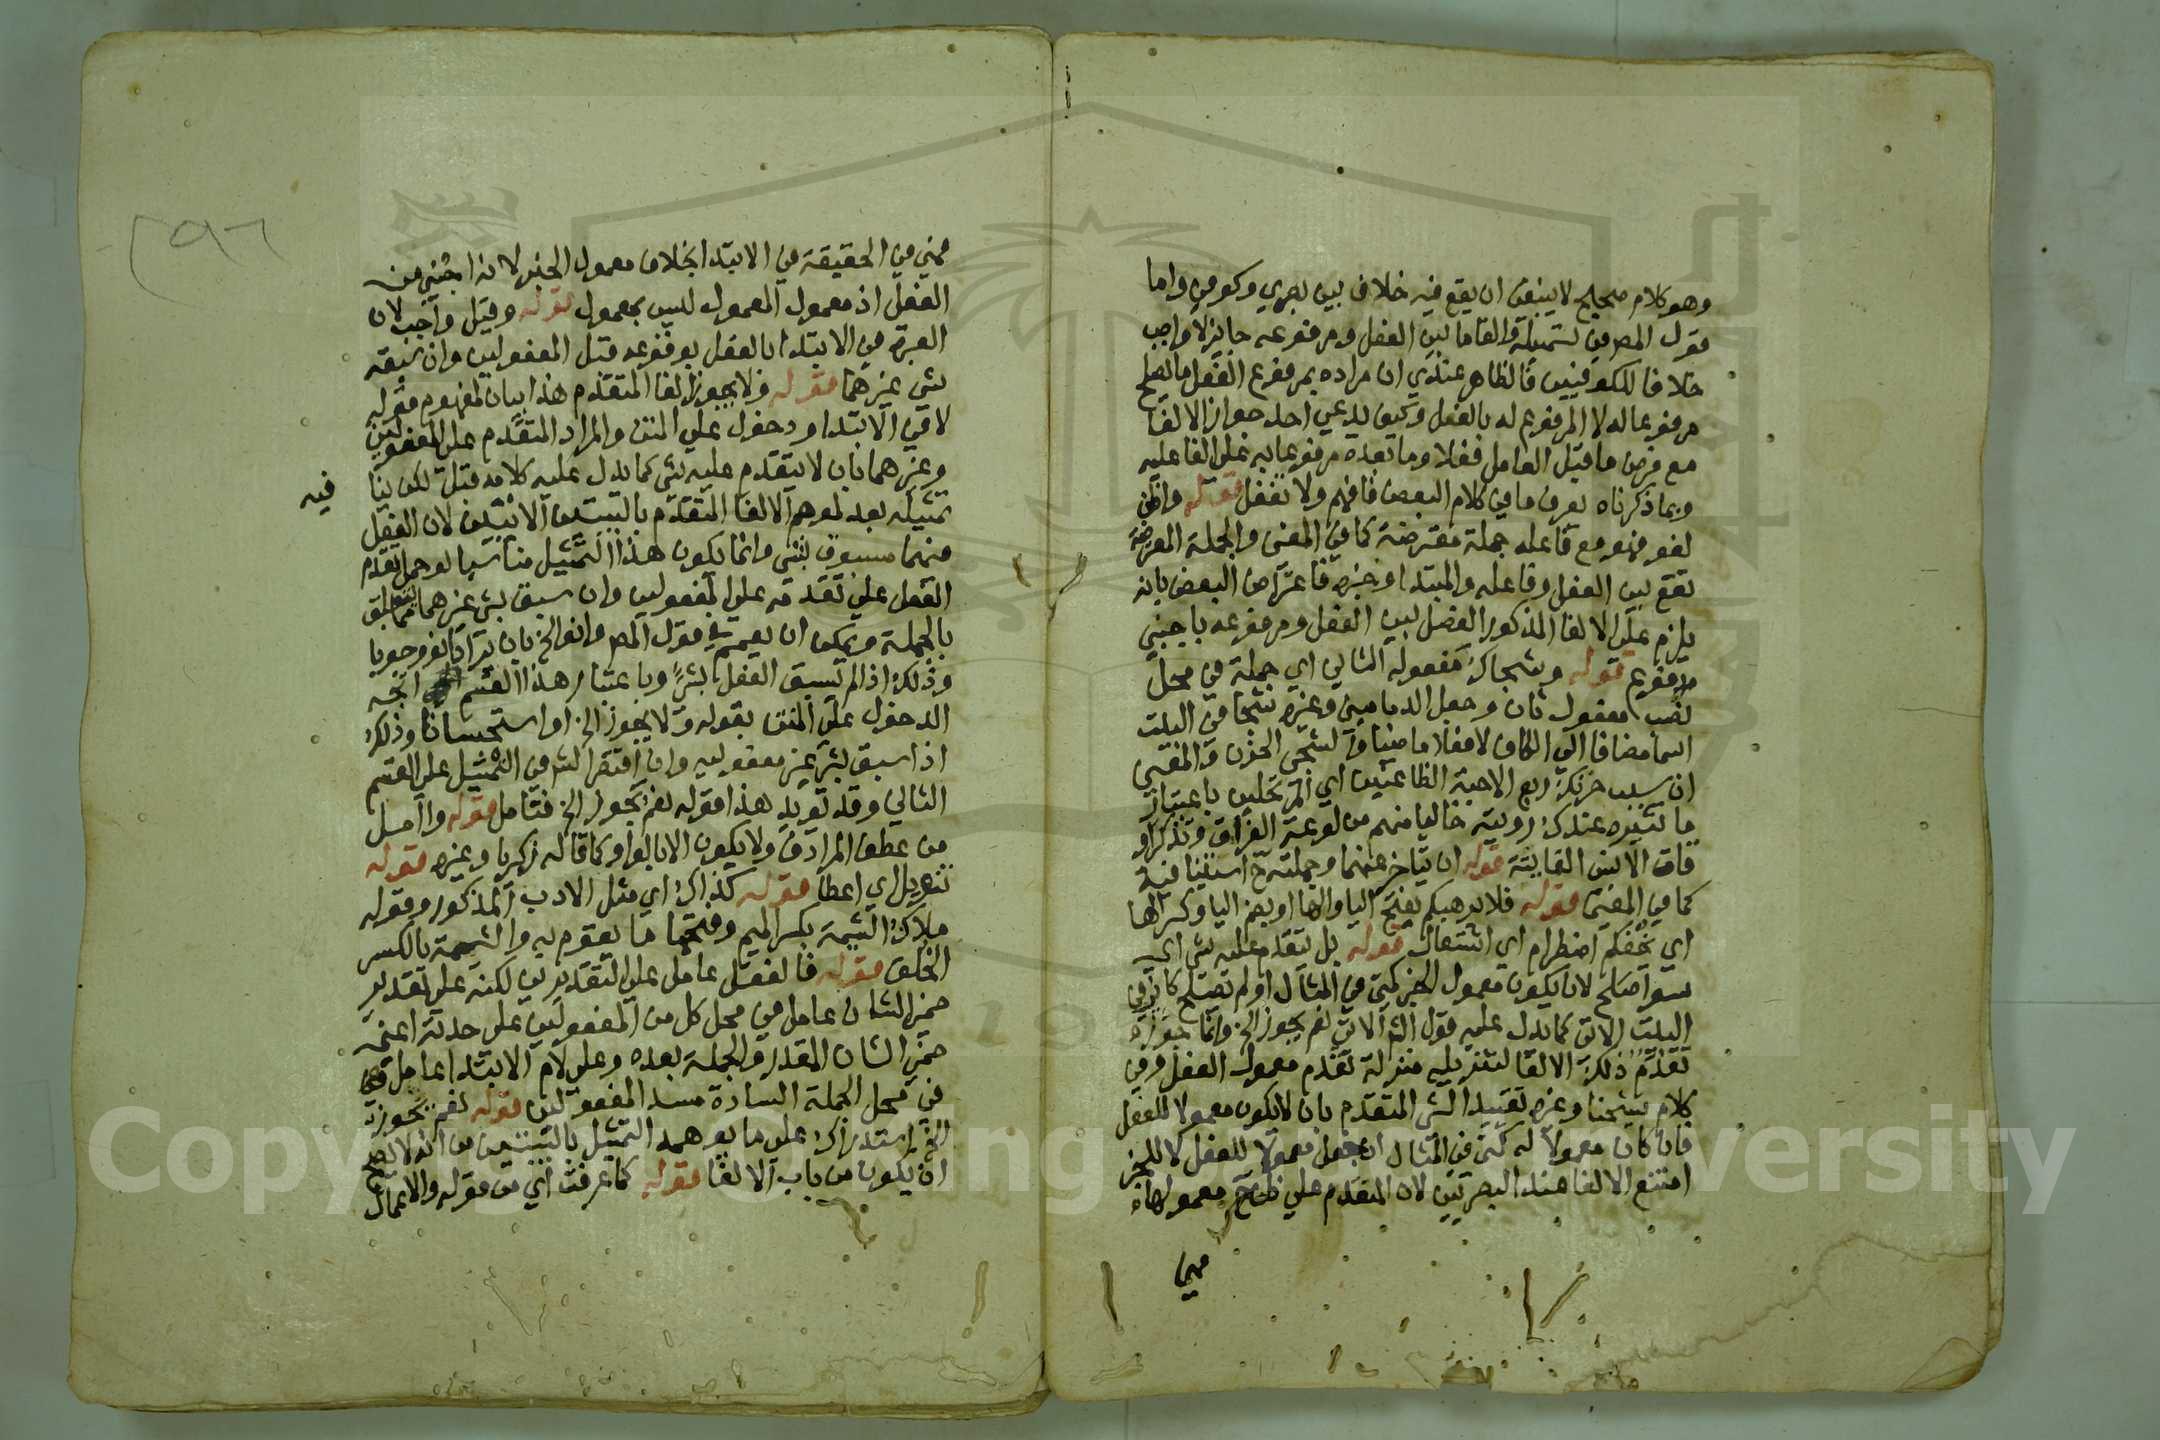 وهو كلام صحيح لا ينبغي ان يقع فيه خلاف بين بصري وكوفي واما
قول المص في تسميلة والقاما بين الفعل ومرفوعه جايز لا واجب
خلافا للكوفيين فالظاهر عندي ان مراده بمرفوع الفعل ما يصلح
مرفوعا له لا المرفوع له بالفعل وكيف يدعي احد جواز الالغا
مع فرض ما قبل العامل فعلا وما بعده مرفوعا به على الفاعليه
وبما ذكرناه يعرف ما في كلام البعض فافهم ولا تغفل قوله واظن
لغو فهو مع فاعله جملة معترضة كما في المغني والجملة المعترضة
تقع بين الفعل وفاعله والمبتدا وخبره فاعتراض البعض بانه
يلزم على الالغا المذكور الفصل بين الفعل ومرفوعه باجنبي
مدفوع قوله وشجاك مفعوله الثاني اي جملة في محل
نصب مفعول ثان وجعل الدماميني وغيره شجا في البيت
اسما مضافا الى الكاف لا فعلا ماضيا والشجى الحزن والمعنى
ان سبب حزنك ربع الاحبة الظاعنين اي المرتحلين باعتبار
ما تثيره عندك رويته خاليا منهم من لوعة الفراق وتذكر او
قات الانس الفايتة قوله ان يتاخر عنهما وجملته ح استينافية
كما في المغني قوله فلا يرهبكم بفتح اليا والها او بضم اليا وكسر الها
اي يخفكم اضطرام اي اشتعال قوله بل تقدم عليه شي اي
سوا صلح لان يكون معمول الخبر كمتى في المثال او لم تصلح كاني في
البيت الاتي كما يدل عليه قول الش الاتي نعم يجوز الخ وانما جوزه
تقدم ذلك الالغا لتنزيله منزلة تقدم معمول الفعل وفي
كلام شيخنا وغيره تقييد الشي المتقدم بان لا يكون معمولا للفعل
فان كان معمولا له كمتى في المثال ان جعل معمولا للفعل لا للخبر
امتنع الالغا عند البصريين لان المتقدم على ظن ح معمولها
فهي
٢٩٦
فهي في الحقيقة في الابتدا بخلاف معمول الخبر لانه اجنبي من
الفعل اذ معمول المعمول ليس بمعمول قوله وقيل واجب لان
العبرة في الابتدا بالفعل بوقوعه قبل المفعولين وان سبقه
شي غيرهما قوله ولا يجوز الغا المتقدم هذا بيان لمفهوم قوله
لا في الابتدا ودخول على المتن والمراد المتقدم على المفعولين
وغيرهما بان لا يتقدم عليه شي كما يدل عليه كلامه قبل لكن ينا
فيه
تمثيله بعد لموهم الالغا المتقدم بالبيتين الاتيين لان الفعل
فيهما مسبوق بشي وانما يكون هذا التمثيل مناسبا لو حمل تقدم
الفعل على تقدمه على المفعولين وان سبق بشي غيرهما مما يتعلق
بالجملة ويمكن ان يعمم في قول المص وانو الخ بان يراد انو وجوبا
وذلك اذا لم يسبق الفعل بشي وباعتبار هذا القسم اتجه
الدخول على المتن بقوله ولا يجوز الخ او استحسانا وذلك
اذا سبق بشي غير معموليه وان اقتصر الش في التمثيل على القسم
الثاني وقد يويد هذا قوله نعم يجوز الخ فتامل قوله وآمل
من عطف المرادف ولا يكون الا بالواو كما قاله زكريا وغيره قوله
تنويل اي اعطا قوله كذاك اي مثل الادب المذكور وقوله
ملاك الشيمة بكسر الميم وفتحها ما يقوم به والشيمة بالكسر
الخلق قوله فالفعل عامل على التقديرين لكنه على تقدير
ضمير الشان عامل في محل كل من المفعولين على حدته اعني
ضمير الشان المقدر والجملة بعده وعلى لام الابتدا عامل
في محل الجملة السادة مسد المفعولين قوله نعم يجوز
الخ استدراك على ما يوهمه التمثيل بالبيتين من انه لا يصح
ان يكون من باب الالغا قوله كما عرفت اي من قوله والاعمال
Copy King University